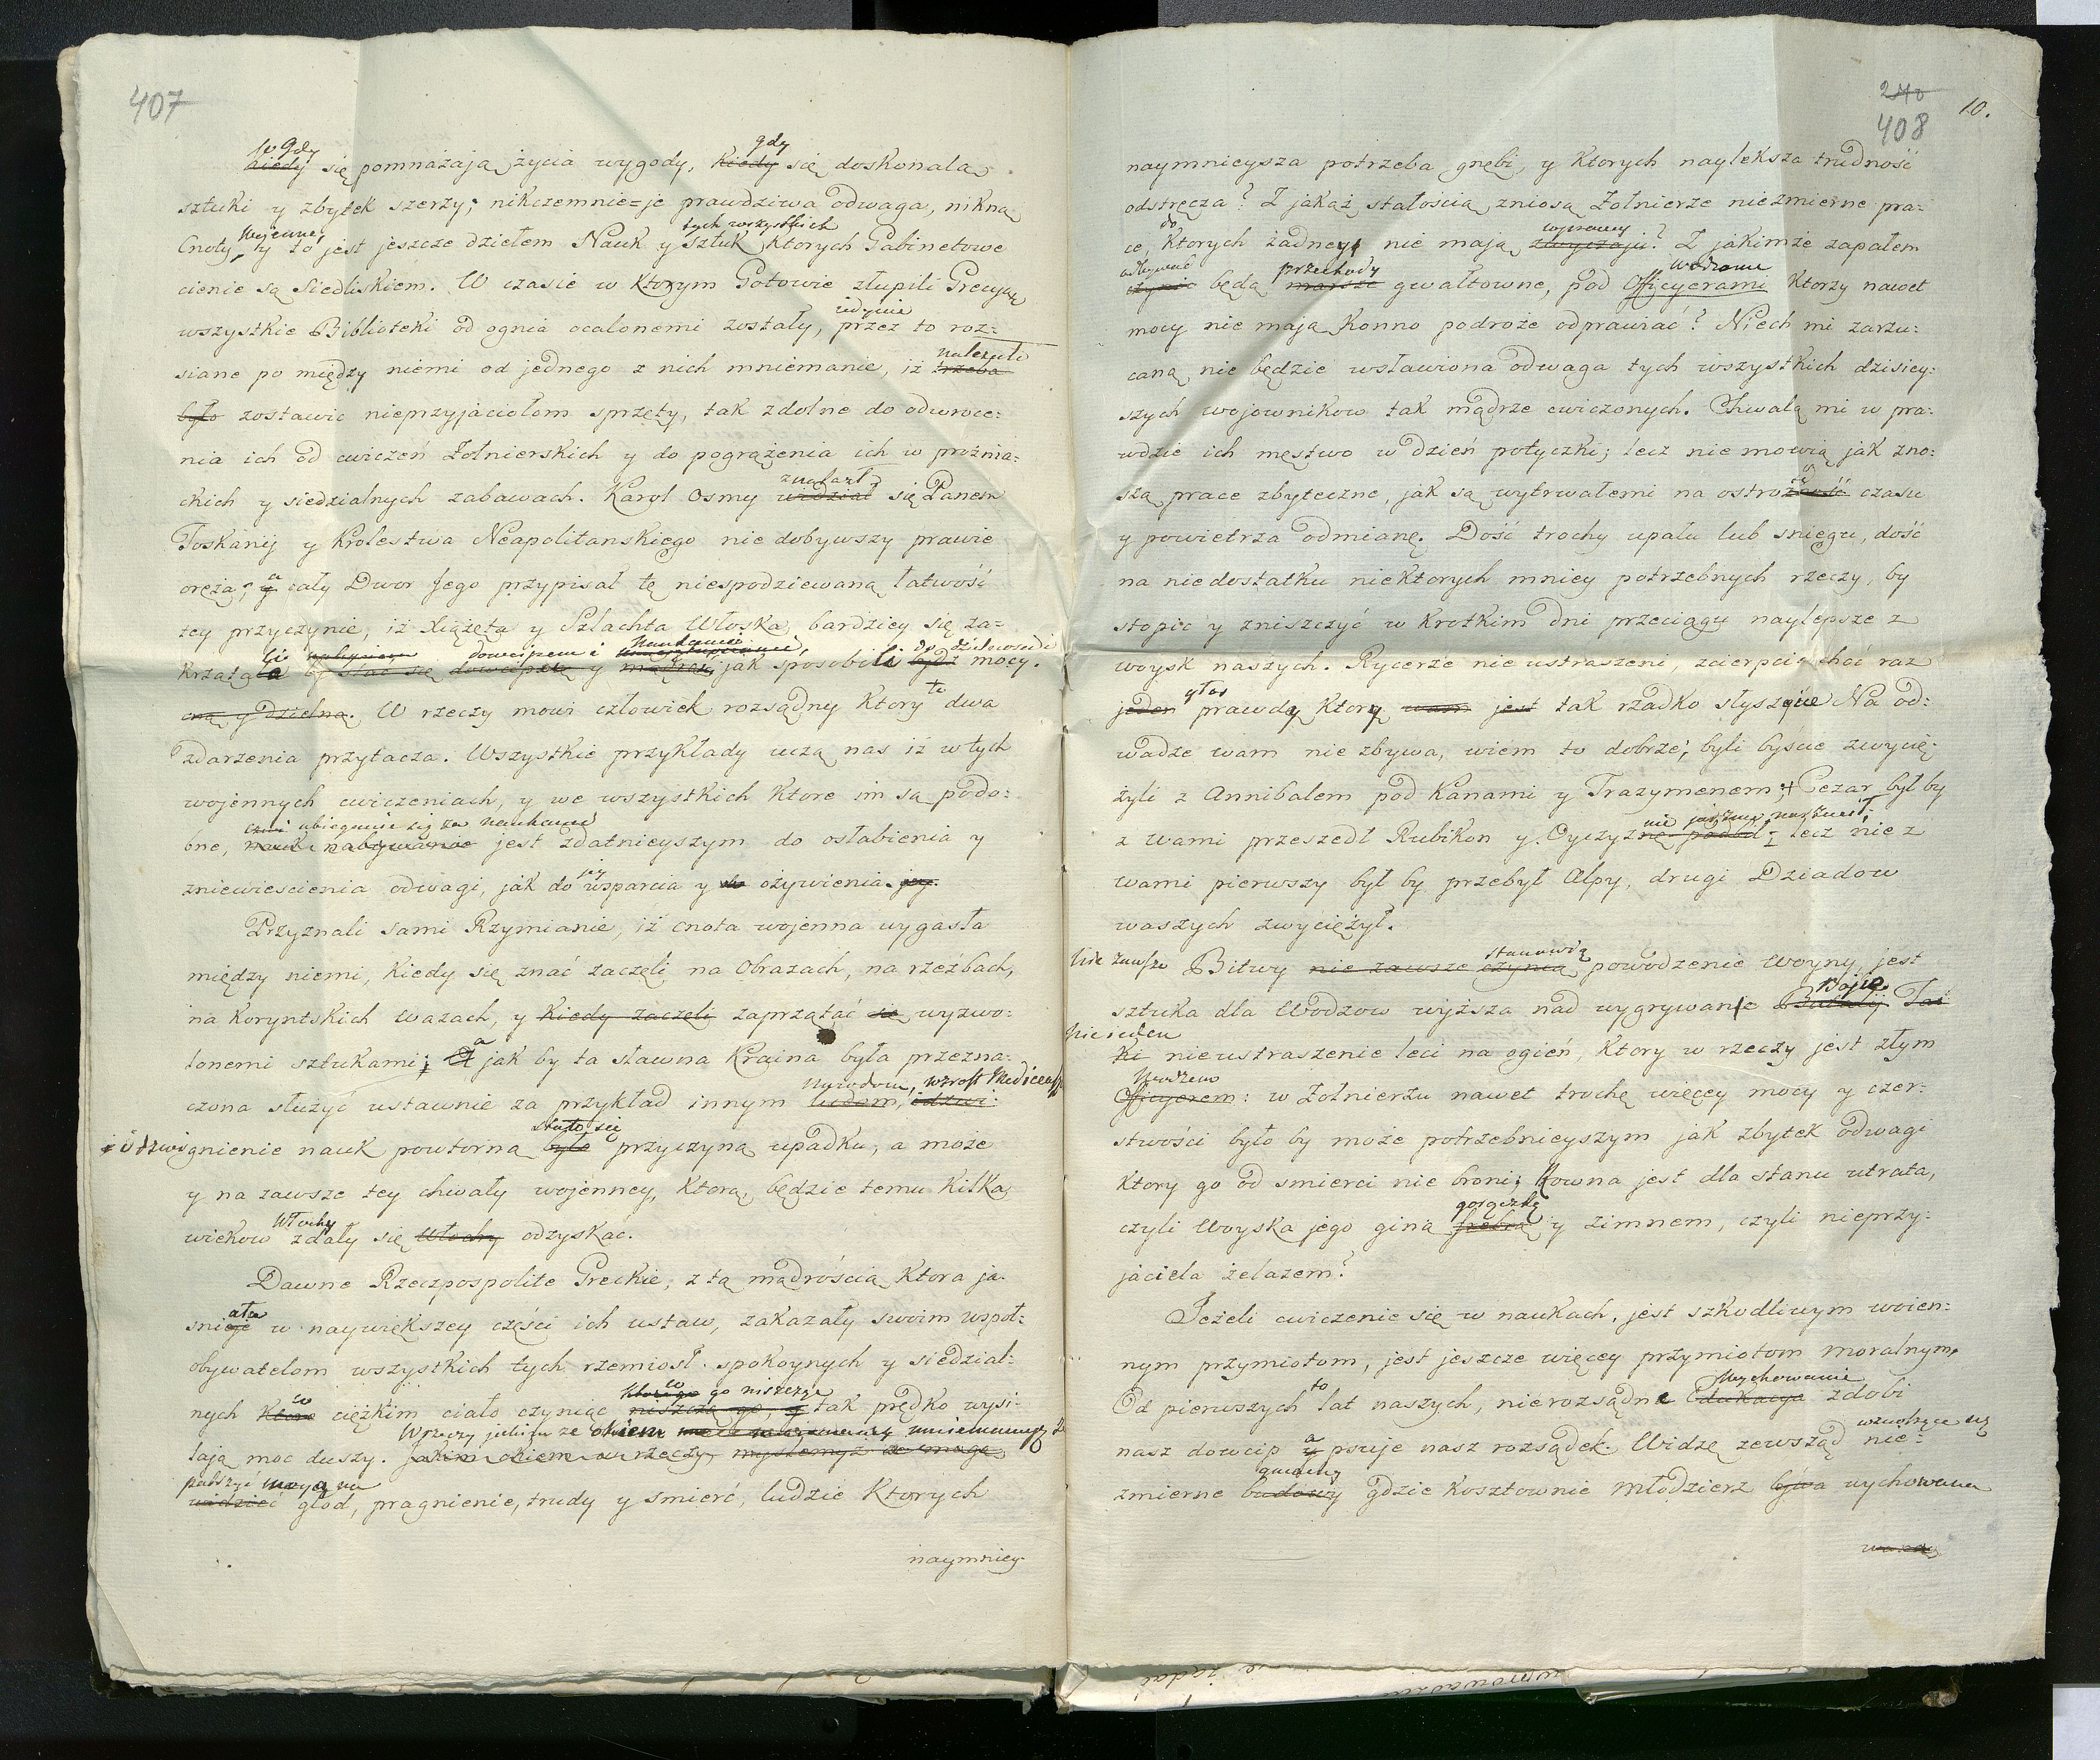 407
to Gdy gdy
kiedy się pomnażają życia wygody, kiedy się doskonalą
sztuki y zbytek szerzy; nikczemnie=je prawdziwa odwaga, nikną
wojenne, tych wszystkich
Cnoty, y to jest jeszcze dziełem Nauk y sztuk, ktorych Gabinetowe
cienie są siedliskiem. W czasie w ktorym Gotowie złupili Grecyą
jedynie
wszystkie Biblioteki od ognia ocalonemi zostały, przez to roz=
należało
siane po między niemi od jednego z nich mniemanie, iż trzeba
było zostawić nieprzyjaciołom sprzęty, tak zdolne do odwroce=
nia ich od cwiczeń Żołnierskich y do pogrążenia ich w prożnia=
znalazł
ckich y siedzialnych zabawach. Karol Osmy widział się Panem
Toskanij y Krolestwa Neapolitanskiego nie dobywszy prawie
a
oręża; y cały Dwor Jego przypisał tę niespodziewaną łatwość
tey przyczynie, iż Xiążęta y Szlachta Włoska, bardziey się za=
dowcipem i Naukami, do dzielnosci i
krzątała by stać się dowcipną y mądrą, jak sposobili bydź mocy.
cną y dzielną. W rzeczy mowi człowiek rozsądny ktory te dwa
zdarzenia przytacza. Wszystkie przykłady uczą nas iż w tych
wojennych cwiczeniach, y we wszystkich ktore im są podo=
ubieganie się za naukami
bne, nauk nabywanie jest zdatnieyszym do osłabienia y
jey
zniewiescienia odwagi, jak do wsparcia y do ożywienia. jey.
Przyznali sami Rzymianie, iż cnota wojenna wygasła
między niemi, kiedy się znać zaczęli na Obrazach, na rzeźbach,
na Koryntskich Wazach, y kiedy zaczęli zaprzątać się wyzwo=
a
lonemi sztukami; A jak by ta sławna Kraina była przezna=
Narodom, wzrost Mediceusz
czona służyć ustawnie za przykład innym ludom, idzwi=
stało się
i odzwignienie nauk powtorną było przyczyną upadku, a może
y na zawsze tey chwały wojenney, ktorą, będzie temu kilka
Włochy
wiekow zdały się Włochy odzyskać.
Dawne Rzeczpospolite Greckie, z tą mądrością ktora ja=
ała
śnieje w naywiększey części ich ustaw, zakazały swoim wspoł=
obywatelom wszystkich tych rzemiosł spokoynych y siedzial=
co ktorego co go niszcząc
nych ktore ciężkim ciało czyniąc niszczą go, y tak prędko wysi=
W rzeczy jakimże okiem
lają moc duszy. Jakim okiem w rzeczy, myślemyż że mogą
patrzyć mogą na
widzieć głod, pragnienie, trudy y śmierć, ludzie ktorych
naymniey
240
408
10.
naymnieysza potrzeba gnębi, y ktorych nayleksza trudność
odstręcza? Z jakąż stałością zniosą Żołnierze niezmierne pra=
do wprawy
ce, ktorych żadney nie mają zwyczaju? Z jakimże zapałem
odbywać przechody Wodzami
czynić będą marsze gwałtowne, pod Officyerami ktorzy nawet
mocy nie mają Konno podroże odprawiać? Niech mi zarzu=
caną nie będzie wsławiona odwaga tych wszystkich dzisiey=
szych wojownikow tak mądrze cwiczonych. Chwalą mi w pra=
wdzie ich męstwo w dzień potyczki; lecz nie mowią jak zno=
szą prace zbyteczne, jak są wytrwałemi na ostrożność czasu
y powietrza odmianę. Dość trochy upału lub sniegu, dość
na niedostatku niektorych mniey potrzebnych rzeczy, by
stopić y zniszczyć w krotkim dni przeciągu naylepsze z
woysk naszych. Rycerze nie ustraszeni, zcierpcie choć raz
głos
jeden prawdy ktory wam jest tak rzadko słyszycie Na od=
wadze wam nie zbywa, wiem to dobrze; byli byscie zwycię=
żyli z Annibalem pod Kanami y Trazymenem; Cezar był by
z wami przeszedł Rubikon y Oyczyznę podbił; lecz nie z
wami pierwszy był by przebył Alpy, drugi Dziadow
waszych zwyciężył.
stanowią
Nie zawsze Bitwy nie zawsze czynią powodzenie Woyny, jest
Boje
sztuka dla Wodzow wyższa nad wygrywanie Batalij. Tai
Nie jeden
ki nieustraszenie leci na ogień, ktory w rzeczy jest złym
Wodzem
Officyerem: w Żołnierzu nawet trochę więcey mocy y czer=
stwości było by może potrzebnieyszym jak zbytek odwagi
ktory go od smierci nie broni; Rowna jest dla stanu utrata,
gorączką
czyli Woyska jego giną febrą y zimnem, czyli nieprzy=
jaciela żelazem?
Jeżeli cwiczenie się w naukach, jest szkodliwym woien=
nym przymiotom, jest jeszcze więcey przymiotom moralnym.
to Wychowanie
Od pierwszych lat naszych, nierozsądne Edukacya zdobi
a wznoszące się
nasz dowcip y psuje nasz rozsądek. Widzę zewsząd nie=
gmachy
zmierne budowy gdzie kosztownie młodzież bywa wychowana